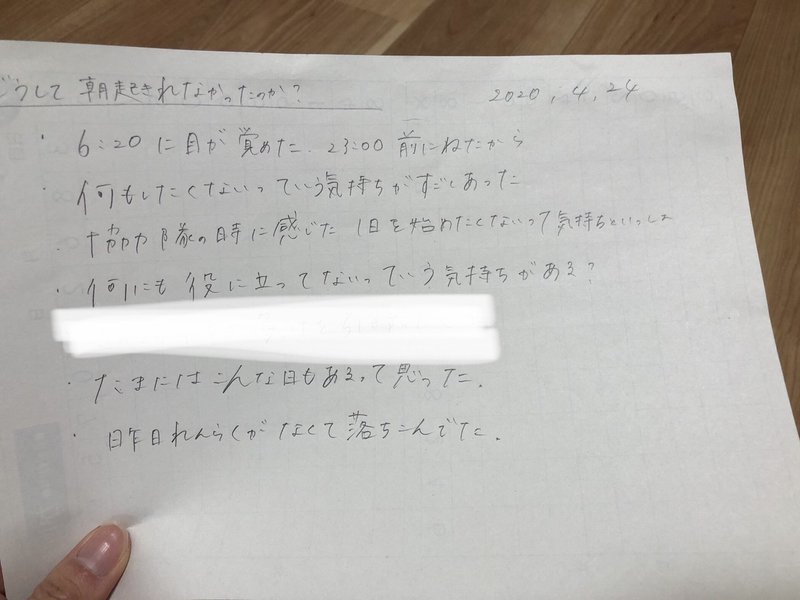 どうして朝起きれなかったのか?
2020.4.24
・6:20に目が覚めた.23:00前にねたから
・何もしたくないっていう気持ちがすごくあった
・協力隊の時に感じた1日を始めたくないって気持ちといっしょ
・何にも役に立ってないっていう気持ちがある?
・たまにはこんな日もあるって思った.
・昨日れんらくがなくて落ちこんでた.